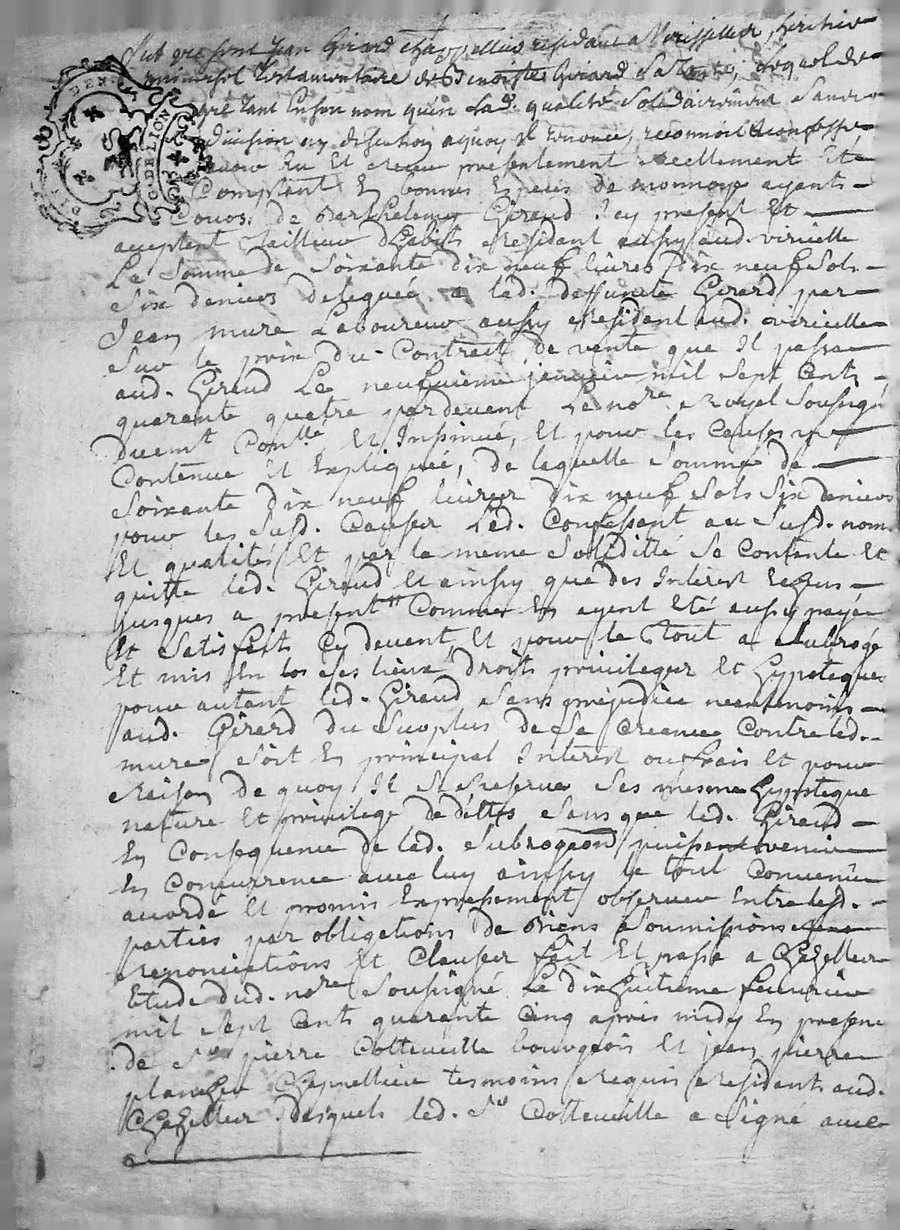 Fut present Jean Girard chappellier residant a Virissellier, heritier
universel testamentaire de Benoiste Girard sa tante, lequel de
gré tant en son nom qu'en lad. qualité solidairement sans
division ny discution a quoy il renonce, reconnoit et confesse
avoir eu et receu presentement reellement et
comptant en bonnes especes de monnoye ayants
cours, de Barthelemy Giraud icy present et
acceptant tailleur d'habits residant aussy aud. viricelle
La somme de soixante dix neuf livres dix neuf sols
six deniers deleguée a lad. deffunte Girard par
Jean mure Laboureur aussy residant aud. viricelle
sur le prix du contract de vente que il passa
aud. Giraud le neufvieme janvier mil sept cents
quarante quatre pardevent le nore. Royal soussigné
duemt. conlle. et Insinué, et pour les causes y
contenue et expliquée, de laquelle somme de
soixante dix neuf livres dix neuf sols six deniers
pour les susd. causes led. confessant au susd. nom
et qualités et par la meme solidité se contente et
quitte led. Giraud et ainsy que des Interest echus
jusques a present comme en ayent eté aussy payée
et satisfaits cy devent, et pour le tout a subrogé
et mis en los et ses lieux droits privileges et hypoteques
pour autant led. Giraud sans prejudice neantmoins
aud. Girard du surplus de sa creance contre led.
mure soit en principal Interest ou frais et pour
raison de quoy il se reserve ses mesme hypoteque
nature et privilege de dettes sans que led. Giraud
en consequence de lad. subrogaon puissent venir
en concurrence avec luy ainsy le tout convenu
accordé et promis expressement observer entre lesd.
parties par obligations de biens soumissions
renonciations et clauses fait et passé a Chazelles
Etude dud. nore soussigné le dix huitieme fevrier
mil sept cents quarante cinq apres midy en presence
de sr. pierre Cotteuville bourgeois et jean pierre
planchu chapellier tesmoins requis residents aud.
Chazelles desquels led. sr. Cotteuville a signé avec